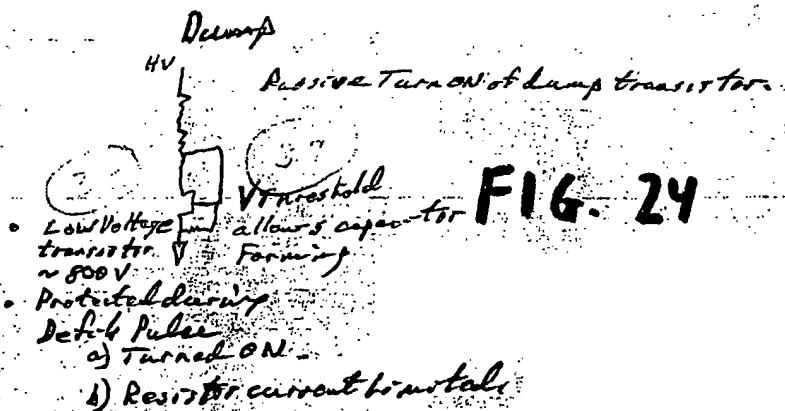 Dump
HV
Passive Turn ON of dump transistor.
V Threshold
allows capacitor
Forming
FIG. 24
• Low Voltage
transistor
~ 800 V
• Protected during
Defib Pulse
a) Turned ON
b) Resistor current limited